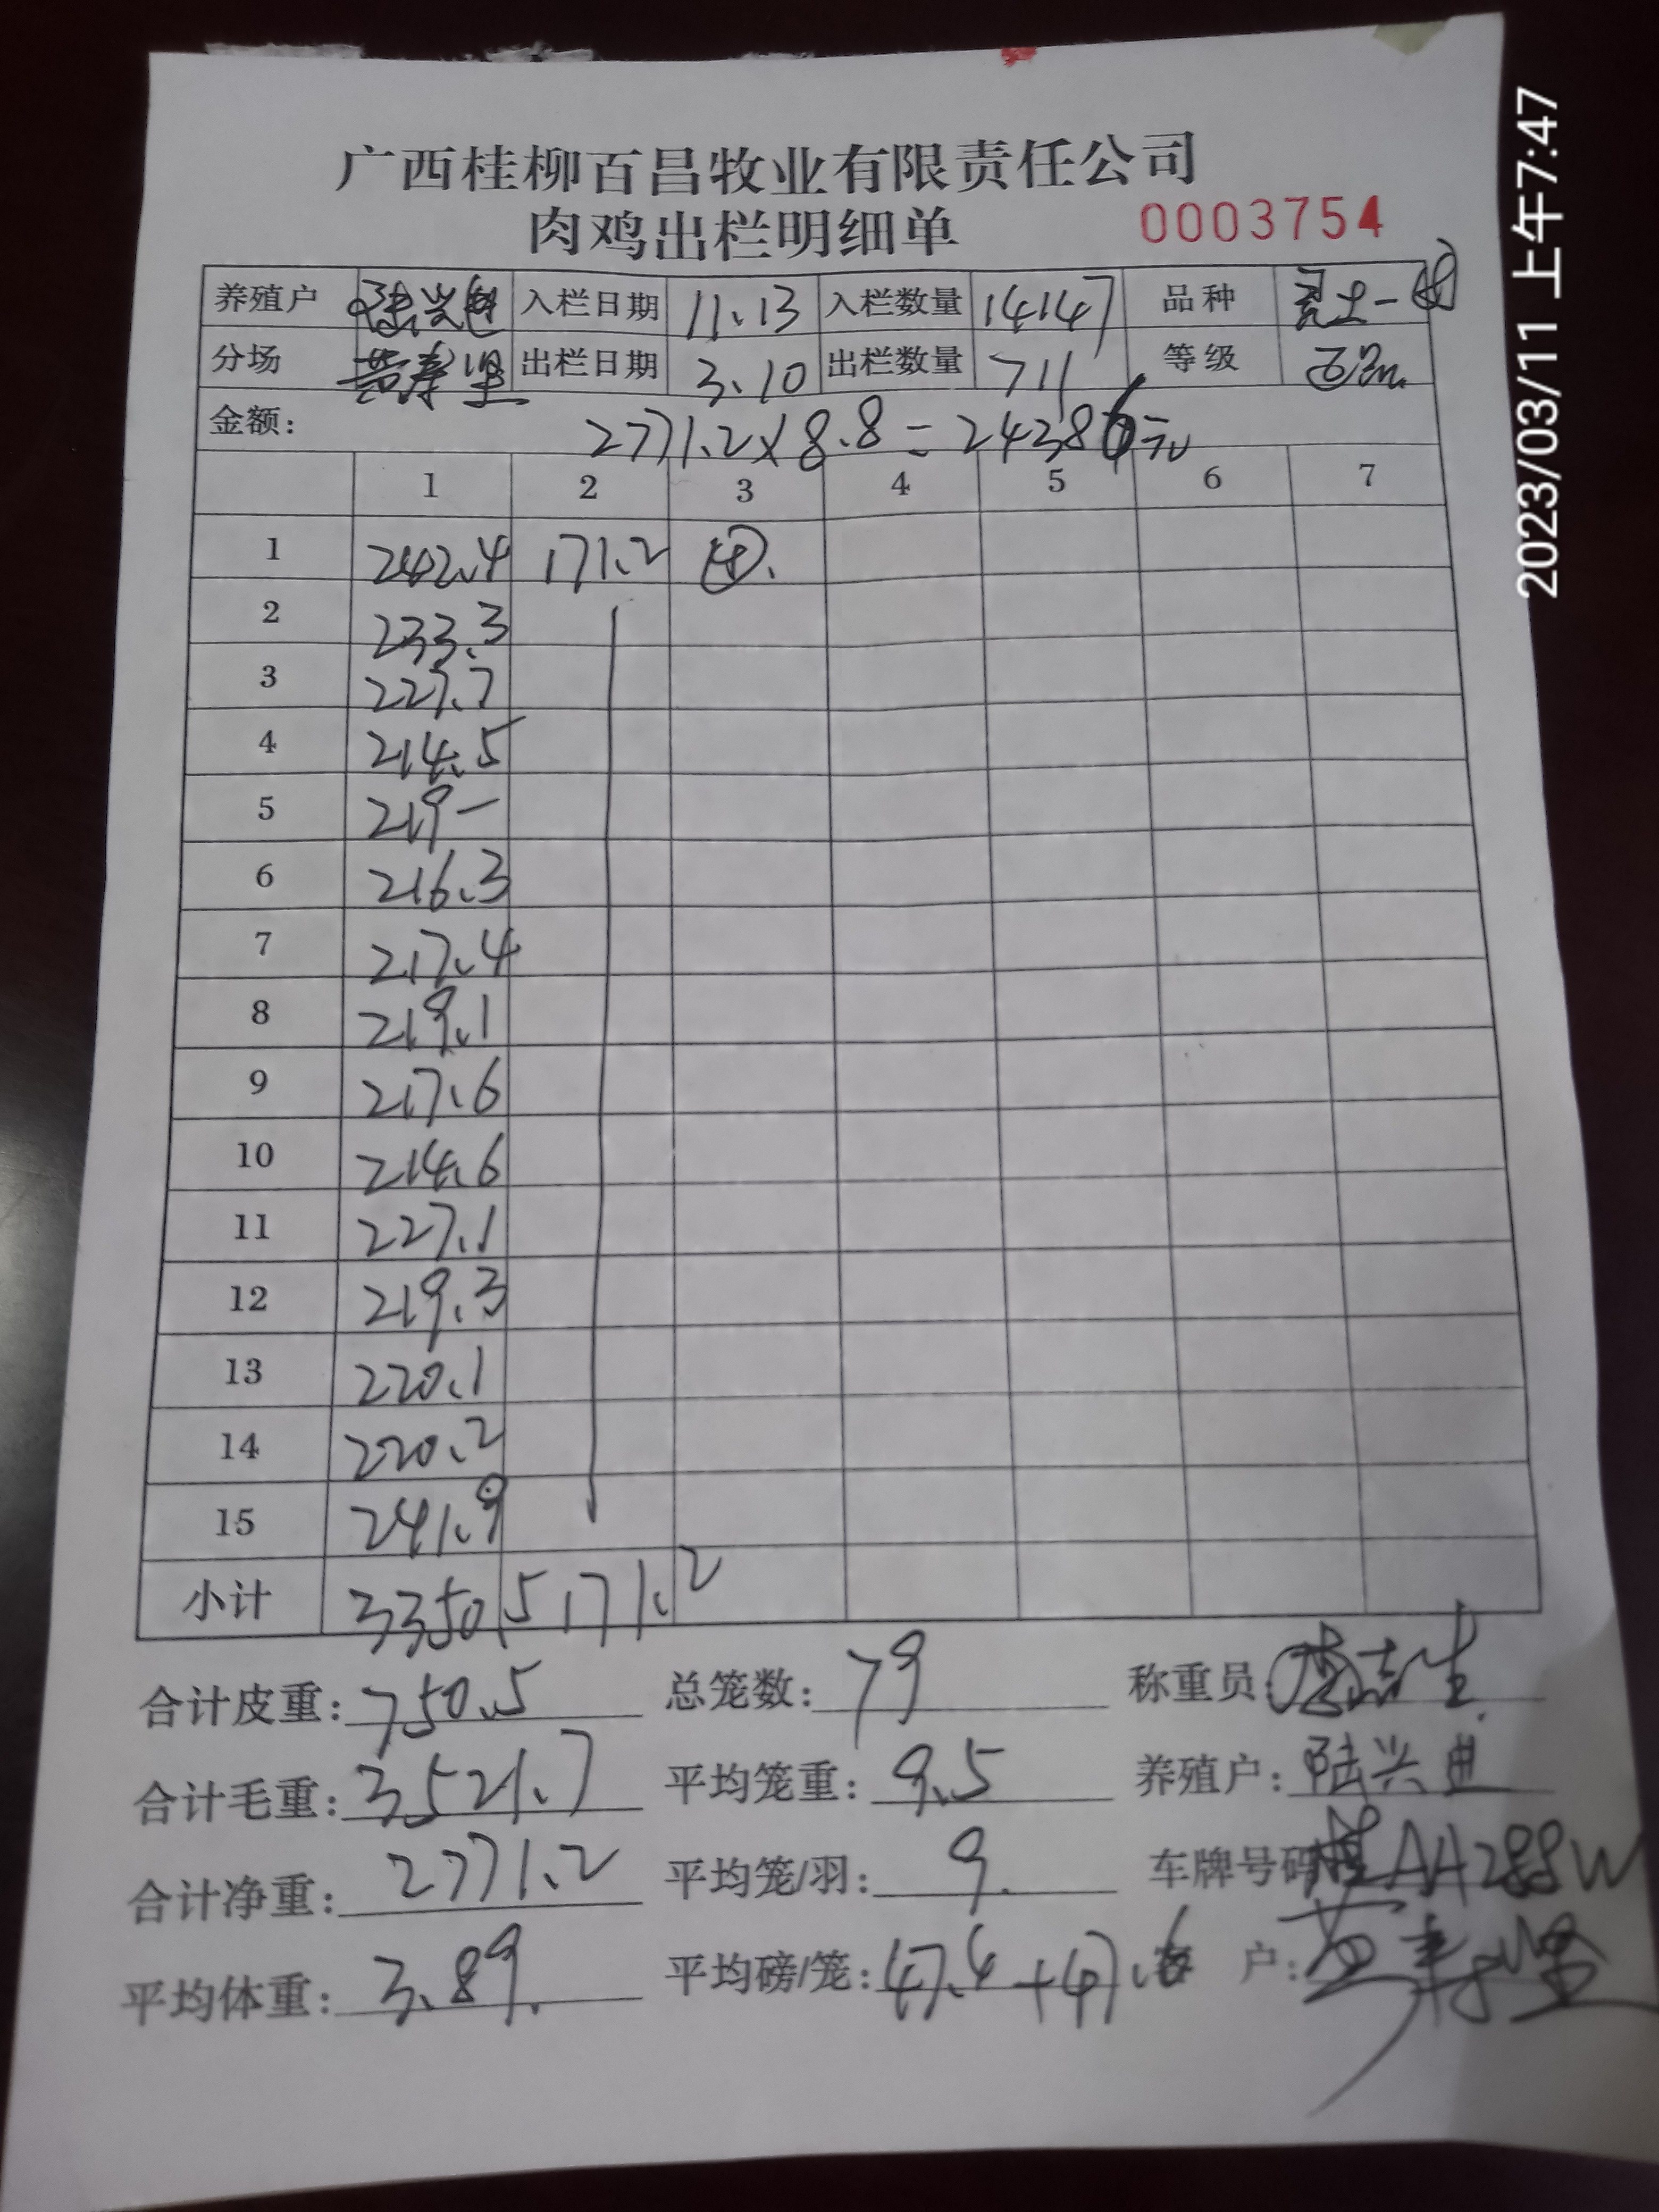 广西桂柳百昌牧业有限责任公司
肉鸡出栏明细单 0003754
养殖户 陆兴 入栏日期 11.13 入栏数量 14147 品种 土一
分场 黄寿坚 出栏日期 3.10 出栏数量 711 等级
金额: 2771.2×8.8=24386元
1 2 3 4 5 6 7
1 242.4 171.2 ④.
2 233.3
3 227.7
4 214.5
5 219一
6 216.3
7 217.4
8 219.1
9 217.6
10 214.6
11 227.1
12 219.3
13 220.1
14 220.2
15 241.9
小计 3350.5 171.2
合计皮重: 750.5 总笼数: 79 称重员: 志生
合计毛重: 3521.7 平均笼重: 9.5 养殖户: 陆兴
合计净重: 2771.2 平均笼/羽: 9. 车牌号码: 桂AA288W
平均体重: 3.89. 平均磅/笼: 47.4+47.6 客 户: 黄寿坚
2023/03/11 上午7:47